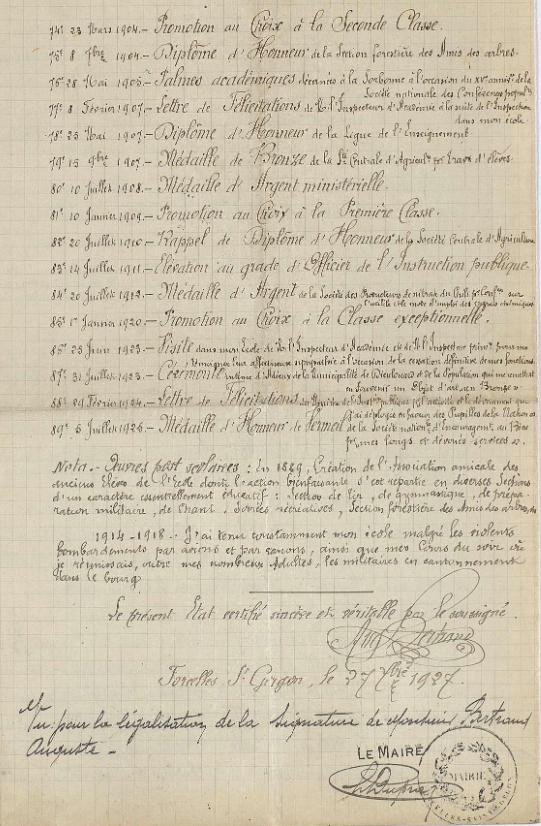 74° 23 Mars 1904.- Promotion au Choix à la Seconde Classe.
75° 8 7bre 1904.- Diplôme d'Honneur de la Section forestière des Amis des arbres.
76° 28 Mai 1905.- Palmes académiques décernées à la Sorbonne à l'occasion du XVe annivre de la
Société nationale des Conférences popul
77° 8 Février 1907.- Lettre de Félicitations de M. l'Inspecteur d'Académie à la suite de l'Inspection
dans mon école
78° 23 Mai 1907.- Diplôme d'Honneur de la Ligue de l'Enseignement
79° 15 9bre 1907.- Médaille de Bronze de la Sté Centrale d'Agricult. pr travx d'élèves.
80° 10 Juillet 1908.- Médaille d'Argent ministérielle.
81° 10 Janvier 1909.- Promotion au Choix à la Première Classe.
82° 20 Juillet 1910.- Rappel de Diplôme d'Honneur de la Société Centrale d'Agriculture
83° 14 Juillet 1911.- Elévation au grade d'Officier de l'Instruction publique.
84° 20 Juillet 1912.- Médaille d'Argent de la Société des Producteurs de nitrate du Chili pr Confces sur
l'emploi des Engrais chimiques
85° 1er Janvier 1920.- Promotion au Choix à la Classe exceptionnelle.
86° 23 Juin 1923.- Visite dans mon Ecole de M. l'Inspecteur d'Académie et de M. l'Inspecteur prim.
témoigner leur affectueuse sympathie à l'occasion de la cessation définitive de mes fonctions.
87° 31 Juillet 1923.- Cérémonie intime d'Adieux de la Municipalité et de la Population qui me remettent
en Souvenir un Objet d'art en Bronze.
88° 29 Février 1924.- Lettre de Félicitations du Ministre de l'Inst. publique pr l'activité et le dévouement que
j'ai déployés en faveur des Pupilles de la Nation.
89° 6 Juillet 1926.- Médaille d'Honneur de Vermeil de la Société nation. d'Encouragemt au Bien
pr mes longs et dévoués services.
Nota.- Œuvres post scolaires : En 1889, Création de l'Association amicale des
anciens Elèves de l'Ecole dont l'action bienfaisante s'est repartie en diverses Sections
d'un caractère essentiellement éducatif : Section de Tir, de gymnastique, de prépa-
ration militaire, de Chant, Soirées récréatives, Section forestière des Amis des arbres,
1914-1918.- J'ai tenu constamment mon école malgré les violents
bombardements par avions et par canons, ainsi que mes Cours du soir où
je réunissais, outre mes nombreux Adultes, les militaires en cantonnement
dans le bourg
Le présent Etat certifié sincère et véritable par le soussigné.
Aug. Bertrand
Forcelles St Gorgon, le 27 7bre 1927.
Vu pour la légalisation de la Signature de Monsieur Bertrand
Auguste -
LE MAIRE
MAIRIE